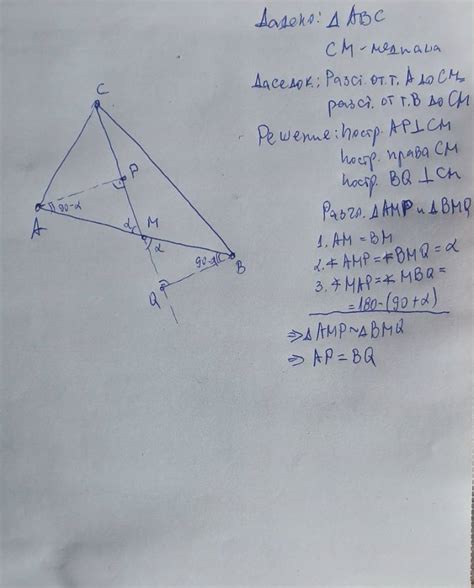 Дадено: Δ ABC
CM - медиана
Да се док: Разст. от т. A до CM =
разст. от т. B до CM
Решение: Постр. AP⊥CM
Постр. права CM
Постр. BQ ⊥ CM
Разгл. ΔAMP и ΔBMQ
1. AM = BM
2. ∢AMP = ∢BMQ = α
3. ∢MAP = ∢MBQ =
= 180-(90+α)
⇒ ΔAMP ~ ΔBMQ
⇒ AP = BQ
C
P
90-α
A
α
M
α
90-α
B
Q